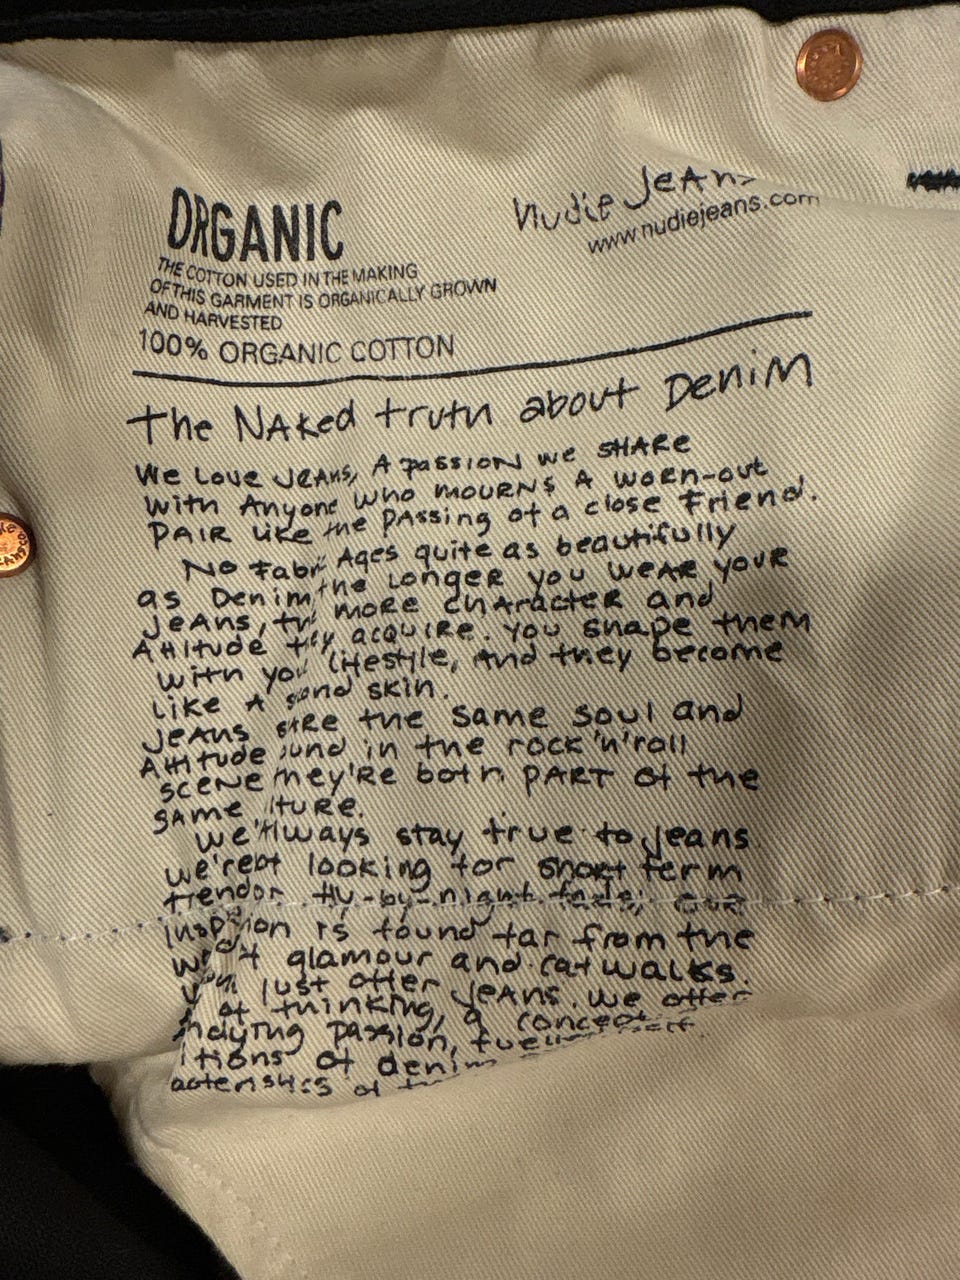 ORGANIC
THE COTTON USED IN THE MAKING
OF THIS GARMENT IS ORGANICALLY GROWN
AND HARVESTED
100% ORGANIC COTTON
Nudie Jeans
www.nudiejeans.com
The Naked truth about Denim
We Love Jeans, A passion we share
with Anyone who mourns a worn-out
pair like the passing of a close friend.
No Fabric Ages quite as beautifully
as Denim the longer you wear your
jeans, the more character and
Attitude they acquire. You shape them
with your lifestyle, and they become
like a second skin.
Jeans share the same soul and
Attitude found in the rock'n'roll
scene they're both part of the
same
We'll always stay true to jeans
we're looking for short term
fly-by-night fads, our
is found far from the
glamour and catwalks.
just offer jeans. We offer
of thinking, a concept
passion,
of denim
of